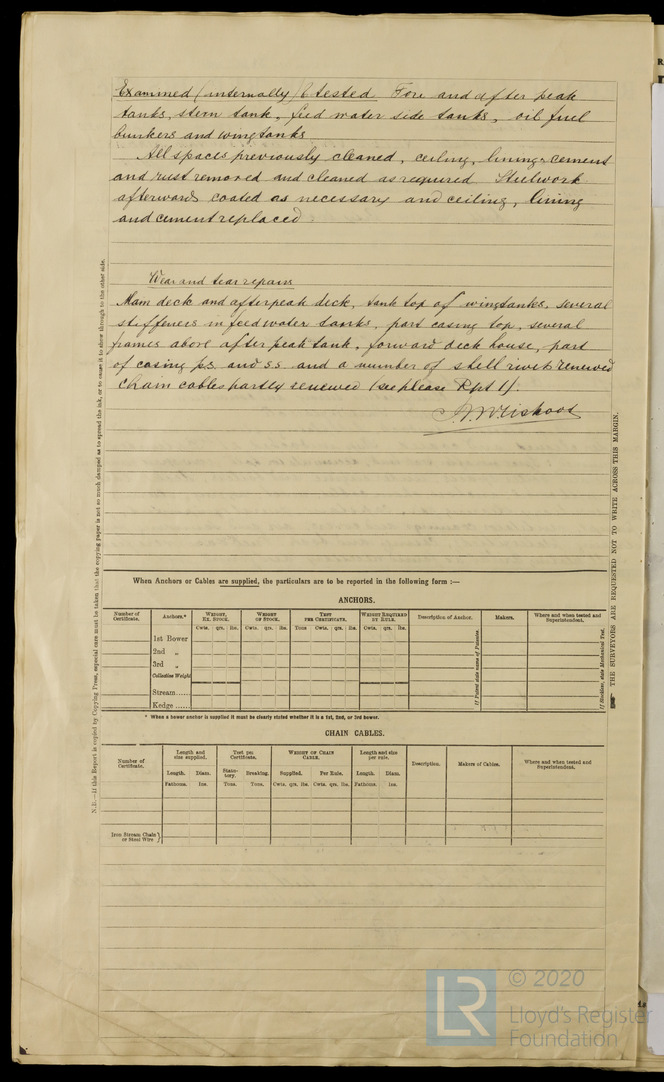 Examined (internally) & tested Fore and after peak
tanks, stern tank, feed water side tanks, oil fuel
bunkers and wingtanks
All spaces previously cleaned, ceiling, lining & cement
and rust removed and cleaned as required Steelwork
afterwards coated as necessary and ceiling, lining
and cement replaced
Wear and tear repairs
Main deck and afterpeak deck, tank top of wingtanks, several
stiffeners in feedwater tanks, part casing top, several
frames above after peak tank, forward deck house, part
of casing p.s. and s.s. and a number of shell rivets renewed
Chain cables partly renewed (see please Rpt 1).
N.B.—If this Report is copied by Copying Press, especial care must be taken that the copying paper is not so much damped as to spread the ink, or to cause it to show through to the other side.
THE SURVEYORS ARE REQUESTED NOT TO WRITE ACROSS THIS MARGIN.
When Anchors or Cables are supplied, the particulars are to be reported in the following form :—
ANCHORS.
Number of Certificate. Anchors.* Weight, Ex. Stock. Weight of Stock. Test per Certificate. Weight Required by Rule. Description of Anchor. Makers. Where and when tested and Superintendent.
Cwts. qrs. lbs. Cwts. qrs. lbs. Tons Cwts. qrs. lbs. Cwts. qrs. lbs.
1st Bower
2nd „
3rd „
Collective Weight
Stream......
Kedge ......
If Patent state name of Patentee.
If Stockless, state Mechanical Test.
* When a bower anchor is supplied it must be clearly stated whether it is a 1st, 2nd, or 3rd bower.
CHAIN CABLES.
Number of Certificate. Length and size supplied. Test per Certificate. Weight of Chain Cable. Length and size per rule. Description. Makers of Cables. Where and when tested and Superintendent.
Length. Diam. Statutory. Breaking. Supplied. Per Rule. Length. Diam.
Fathoms. Ins. Tons. Tons. Cwts. qrs. lbs. Cwts. qrs. lbs. Fathoms. Ins.
Iron Stream Chain or Steel Wire
LR
© 2020
Lloyd's Register
Foundation